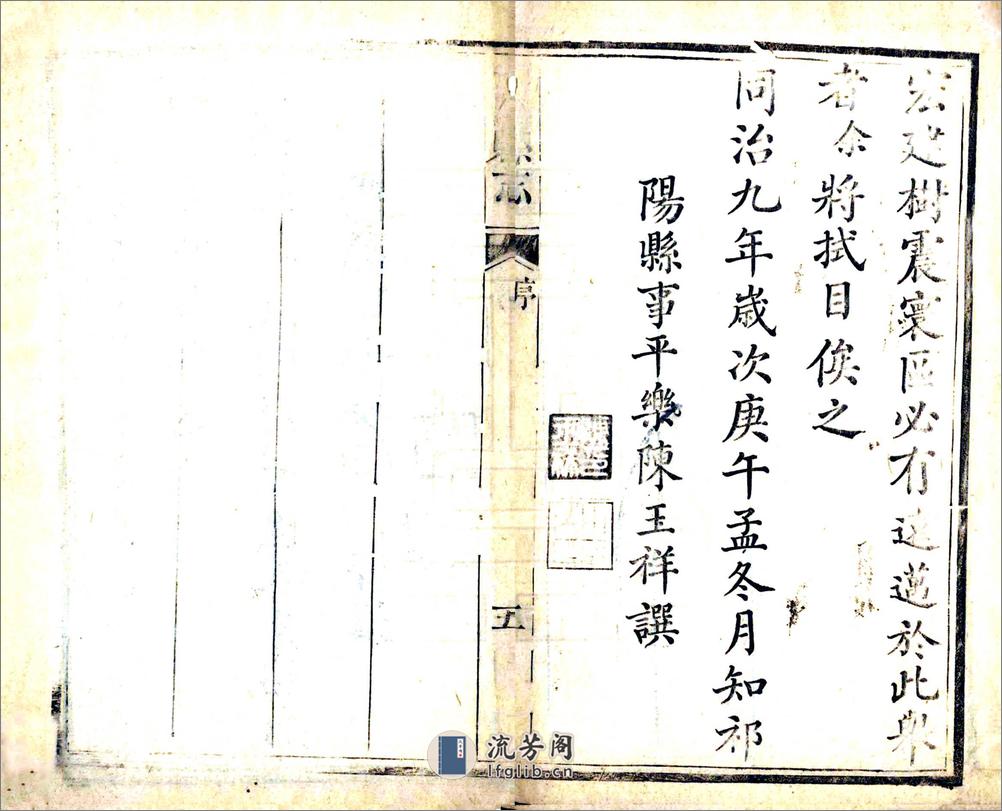 宏建樹震寰區必有遠邁於此舉
者余將拭目俟之
同治九年歲次庚午孟冬月知祁
陽縣事平樂陳玉祥譔
縣志
序
五
流芳阁
lfglib.cn